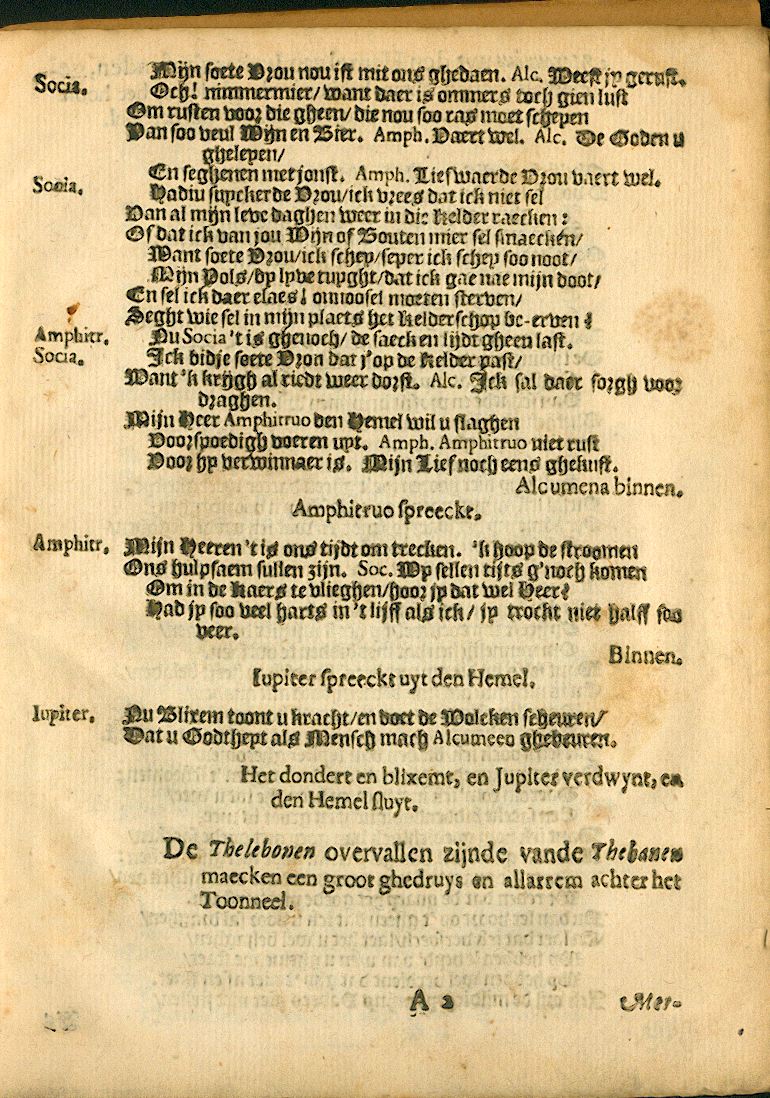 Mijn soete Vrou nou ist mit ons ghedaen. Alc. Weest jy gerust.
Socia. Och! nimmermier/ want daer is ommers toch gien lust
Om rusten voor die gheen/ die nou soo ras moet schepen
Van soo veul Wijn en Bier. Amph. Vaert wel. Alc. De Goden u
ghelepen/
En seghenen met jonst. Amph. Lief waerde Vrou vaert wel.
Socia. Hadiu supckerde Vrou/ick vrees dat ick niet sel
Van al mijn leve daghen weer in die Kelder raecken:
Of dat ick van jou Wijn of Bouten mier sel smaecken/
Want soete Vrou/ick schep/seper ick schep soo noot/
Mijn Pols/dy lyve tuyght/dat ick gae nae mijn doot/
En sel ick daer elaes! onnoosel moeten sterven/
Seght wie sel in mijn plaets het Kelderschop be-erven?
Amphitr. Nu Socia 't is ghenoch/ de saeck en lijdt gheen last.
Socia. Ick bidje soete Vrou dat j'op de Kelder past/
Want 'k krijgh al riedt weer dorst. Alc. Ick sal daer sorgh voor
draghen.
Mijn Heer Amphitruo den Hemel wil u slaghen
Voorspoedigh voeren uyt. Amph. Amphitruo niet rust
Voor hy verwinnaer is. Mijn Lief noch eens ghekust.
Alcumena binnen.
Amphitruo spreeckt.
Amphitr. Mijn Heeren 't is ons tijdt om trecken. 'k hoop de stroomen
Ons hulpsaem sullen zijn. Soc. Wy sellen tijts g'noch komen
Om in de kaers te vlieghen/hoor jy dat wel Heer?
Had jy soo veel harts in 't lijff als ick/ jy trockt niet halff soo
veer.
Binnen.
Iupiter spreeckt uyt den Hemel.
Iupiter. Nu Blixem toont u kracht/en doet de Wolcken scheuren/
Dat u Godtheyt als Mensch mach Alcumeeo ghebeuren.
Het dondert en blixemt, en Jupiter verdwynt, en
den Hemel sluyt.
De Thelebonen overvallen zijnde vande Thebanen
maecken een groot ghedruys en allarrem achter het
Toonneel.
A 2 Mer-